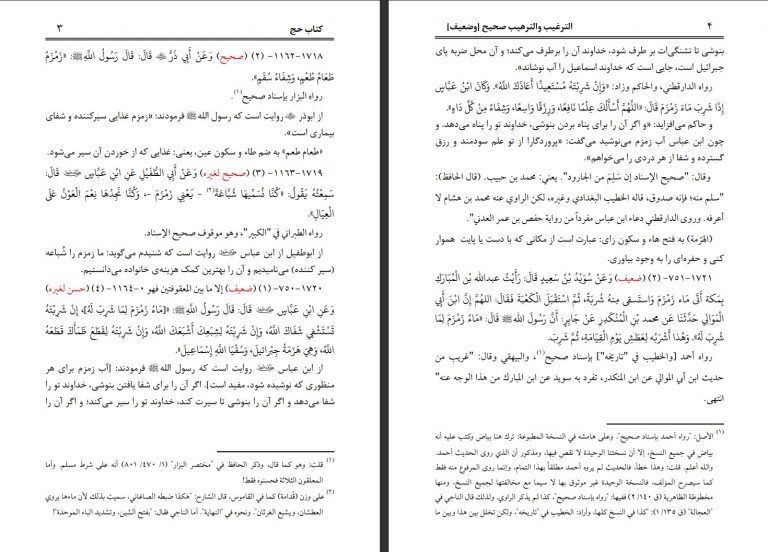 کتاب حج ۳
۱۷۱۸-۱۱۶۲- (۲) (صحیح) وَعَنْ أَبِي ذَرٍّ قَالَ: قَالَ رَسُولُ اللَّهِ ﷺ: «زَمْزَمُ
طَعَامُ طُعْمٍ، وَشِفَاءُ سُقْمٍ».
رواه البزار بإسناد صحیح(۱).
از ابوذر روایت است که رسول الله ﷺ فرمودند: «زمزم غذایی سیرکننده و شفای
بیماری است».
«طعام طعم» به ضم طاء و سکون عین، یعنی: غذایی که از خوردن آن سیر می‌شود.
۱۷۱۹-۱۱۶۳- (۳) (صحیح لغیره) وَعَنْ أَبِي الطُّفَيْلِ عَنِ ابْنِ عَبَّاسٍ قَالَ:
سَمِعْتُهُ يَقُولُ: «كُنَّا نُسَمِّيهَا شُبَّاعَةً(۲) - يَعْنِي زَمْزَمَ -، وَكُنَّا نَجِدُهَا نِعْمَ الْعَوْنُ عَلَى
الْعِيَالِ».
رواه الطبراني في "الكبير"، وهو موقوف صحیح الإسناد.
از ابوطفیل از ابن عباس روایت است که شنیدم می‌گوید: ما زمزم را شُباعه
(سیر کننده) می‌نامیدیم و آن را بهترین کمک هزینه‌ی خانواده می‌دانستیم.
۱۷۲۰-۷۵۰-(۱) (ضعیف) إلا ما بین المعقوفتین فهو ۰-۱۱۶۴- (٤) (حسن لغیره)
وَعَنِ ابْنِ عَبَّاسٍ قَالَ: قَالَ رَسُولُ اللَّهِ ﷺ: «[مَاءُ زَمْزَمَ لِمَا شُرِبَ لَهُ]، إِنْ شَرِبْتَهُ
تَسْتَشْفِي شَفَاكَ اللَّهُ، وَإِنْ شَرِبْتَهُ لِشِبَعِكَ أَشْبَعَكَ اللَّهُ، وَإِنْ شَرِبْتَهُ لِقَطْعِ ظَمَئِكَ قَطَعَهُ
اللَّهُ، وَهِيَ هَزْمَةُ جِبْرَائِيلَ، وَسُقْيَا اللَّهِ إِسْمَاعِيلَ».
از ابن عباس روایت است که رسول الله ﷺ فرمودند: [آب زمزم برای هر
منظوری که نوشیده شود، مفید است]. اگر آن را برای شفا یافتن بنوشی، خداوند تو را
شفا می‌دهد و اگر آن را بنوشی تا سیرت کند، خداوند تو را سیر می‌کند؛ و اگر آن را
(۱) قلت: وهو كما قال، وذكر الحافظ في "مختصر البزار" (۱/ ۴۷۰/ ۸۰۱) أنه على شرط مسلم. وأما
المعلقون الثلاثة فحسنوه فقط!
(۲) على وزن (قدامة) كما في القاموس، قال الشارح: "هكذا ضبطه الصاغاني، سميت بذلك لأن ماءها يروي
العطشان، ويشبع الغرثان". ونحوه في "النهاية". أما الناجي فقال: "بفتح الشين، وتشديد الباء الموحدة"!
۴ الترغیب والترهیب صحیح [وضعیف]
بنوشی تا تشنگی‌ات بر طرف شود، خداوند آن را برطرف می‌کند؛ و آن محل ضربه پای
جبرائیل است، جایی است که خداوند اسماعیل را آب نوشاند».
رواه الدارقطني، والحاكم وزاد: «وَإِنْ شَرِبْتَهُ مُسْتَعِيذًا أَعَاذَكَ اللَّهُ». وَكَانَ ابْنُ عَبَّاسٍ
إِذَا شَرِبَ مَاءَ زَمْزَمَ قَالَ: «اللَّهُمَّ أَسْأَلُكَ عِلْمًا نَافِعًا، وَرِزْقًا وَاسِعًا، وَشِفَاءً مِنْ كُلِّ دَاءٍ».
و حاکم می‌افزاید: «و اگر آن را برای پناه بردن بنوشی، خداوند تو را پناه می‌دهد. و
چون ابن عباس آب زمزم می‌نوشید می‌گفت: «پروردگارا از تو علم سودمند و رزق
گسترده و شفا از هر دردی را می‌خواهم».
وقال: "صحیح الإسناد إن سَلِمَ من الجارود". یعنی: محمد بن حبیب. (قال الحافظ):
"سلم منه؛ فإنه صدوق، قاله الخطیب البغدادي وغیره، لکن الراوي عنه محمد بن هشام لا
أعرفه. وروى الدارقطني دعاء ابن عباس مفرداً من رواية حفص بن عمر العدني".
(الهَزمَة) به فتح هاء و سکون زای: عبارت است از مکانی که با دست یا پایت هموار
کنی و حفره‌ای را به وجود بیاوری.
۱۷۲۱-۷۵۱-(۲) (ضعیف) وَعَنْ سُوَيْدِ بْنِ سَعِيدٍ قَالَ: رَأَيْتُ عبدالله بْنَ الْمُبَارَكِ
بِمَكةَ أَتَى مَاءَ زَمْزَمَ وَاسْتَسقى مِنه شُربَةً، ثُمَّ اسْتَقْبَلَ الْكَعْبَةَ فَقَالَ: اللهُمَّ إنَّ ابْنَ أبي
الْمَوَالِي حَدَّثَنَا عَن محمد بْنِ الْمُنْكَدِرِ عَنْ جَابِرٍ: أنَّ رَسولَ الله ﷺ قَالَ: «مَاءُ زَمْزَمَ لِمَا
شُرِبَ لَهُ». وَهذَا أَشْرَبُهُ لِعَطَشِ يَوْمِ الْقِيَامَةِ، ثُمَّ شَرِبَ.
رواه أحمد [والخطیب في "تاریخه"] بإسناد صحیح(۱)، والبیهقي وقال: "غریب من
حدیث ابن أبي الموالي عن ابن المنکدر، تفرد به سوید عن ابن المبارك من هذا الوجه عنه"
انتهى.
(۱) الأصل: "رواه أحمد بإسناد صحیح". وعلى هامشه في النسخة المطبوعة: ترك هنا بياض وكتب عليه أنه
بياض في جميع النسخ، إلا أن نسختنا الوحيدة لا نقص فيها، ومذكور أن الذي روى الحديث أحمد.
والله أعلم. قلت: وهذا خطأ، فالحديث لم يروه أحمد مطلقاً بهذا التمام، وإنما روى المرفوع منه فقط
كما سيصرح المؤلف، فالنسخة الوحيدة غير موثوق بها لا سيما مع مخالفتها لجميع النسخ، ومنها
مخطوطة الظاهرية (ق ۱۴۰/ ۲) ففيها: "رواه بإسناد صحیح"، كذا لم يذكر الراوي. ولذلك قال الناجي في
"العجالة" (ق ۱۳۵/ ۱): "كذا في النسخ كلها، وأراد: الخطيب في "تاريخه"، ولكن تخلل بين هذا وبين ما